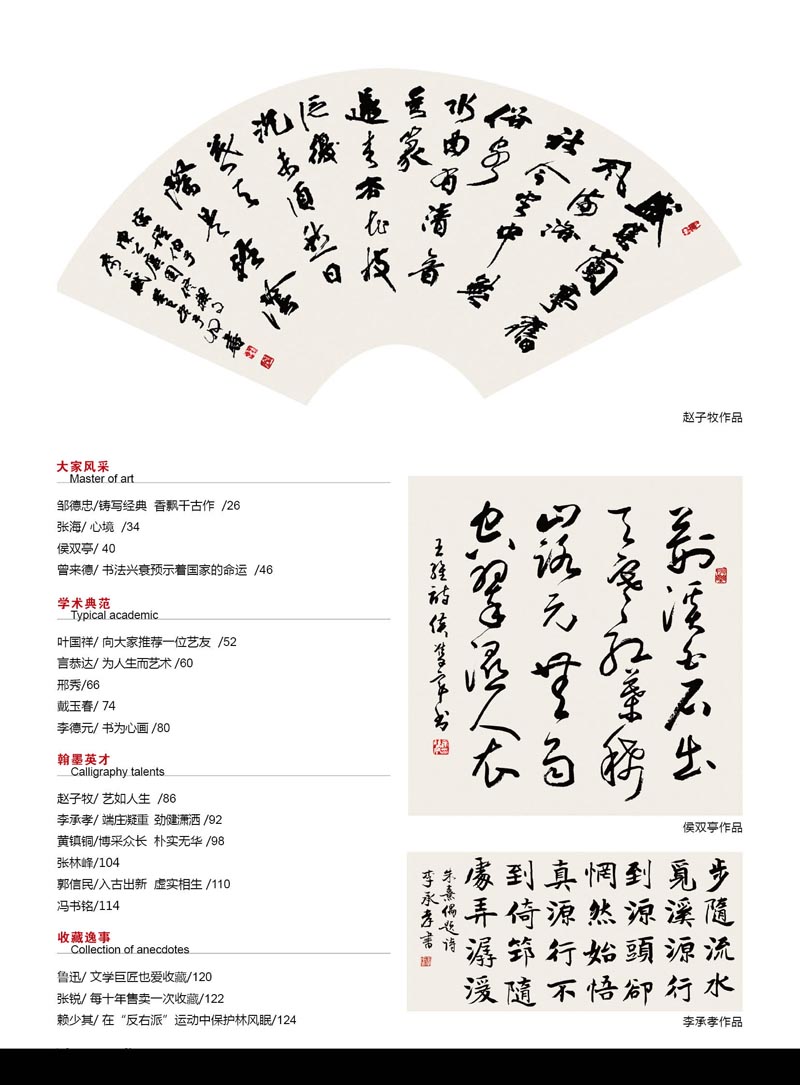 水曲有清音
赵子牧作品
大家风采
Master of art
邹德忠/铸写经典 香飘千古作 /26
张海/ 心境 /34
侯双亭/ 40
曾来德/ 书法兴衰预示着国家的命运 /46
学术典范
Typical academic
叶国祥/ 向大家推荐一位艺友 /52
言恭达/ 为人生而艺术 /60
邢秀/66
戴玉春/ 74
李德元/ 书为心画 /80
翰墨英才
Calligraphy talents
赵子牧/ 艺如人生 /86
李承孝/ 端庄凝重 劲健潇洒 /92
黄镇铜/博采众长 朴实无华 /98
张林峰/104
郭信民/入古出新 虚实相生 /110
冯书铭/114
收藏逸事
Collection of anecdotes
鲁迅/ 文学巨匠也爱收藏/120
张锐/ 每十年售卖一次收藏/122
赖少其/ 在“反右派”运动中保护林风眠/124
荆溪白石出
天寒红葉稀
山路元無雨
空翠濕人衣
王維詩侯雙亭书
侯双亭作品
步隨流水
覓溪源行
到源頭卻
惘然始悟
真源行不
到倚筇隨
處弄潺湲
朱熹偶題詩
李承孝書
李承孝作品